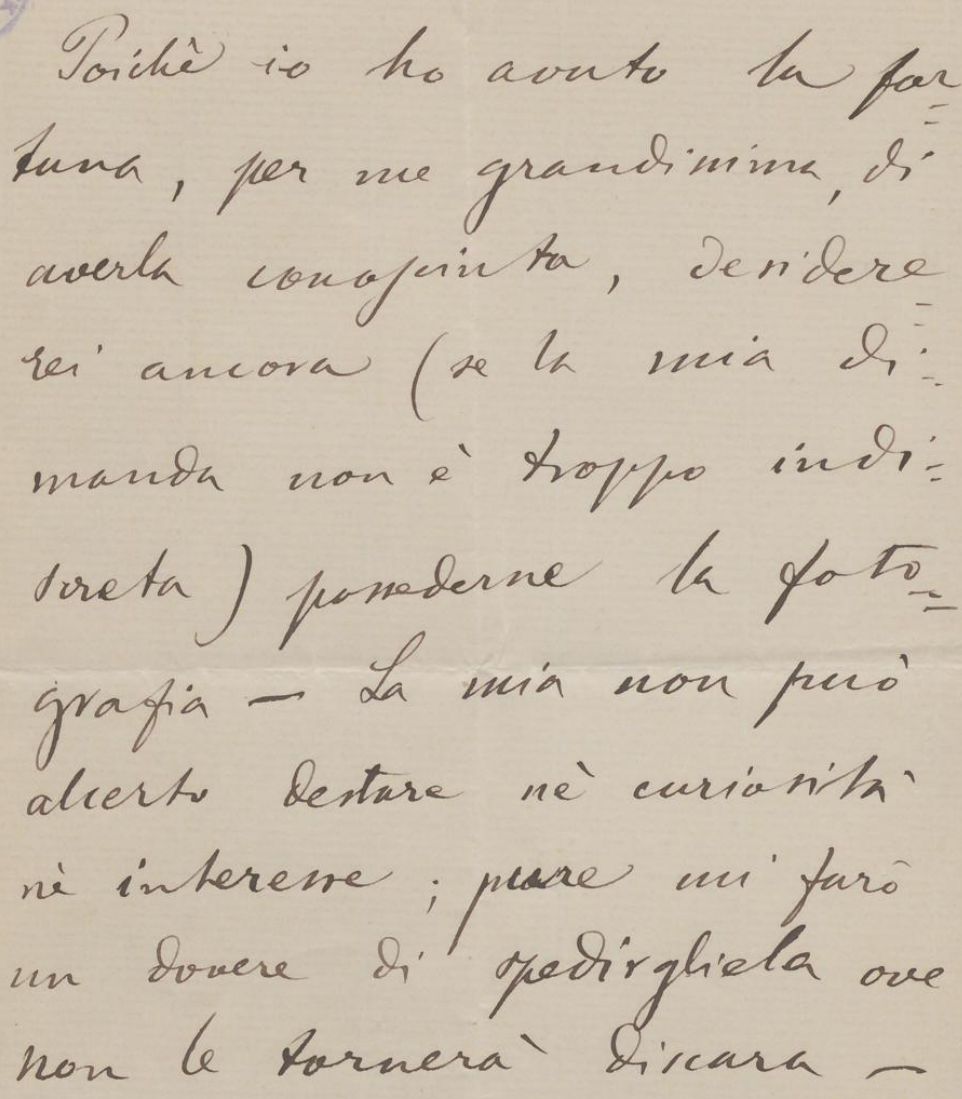 Poichè io ho avuto la for=
tuna, per me grandissima, di
averla conosciuta, desidere=
rei ancora (se la mia di=
manda non è troppo indi=
screta) possederne la foto=
grafia — La mia non può
alcerto destare nè curiosità
nè interesse; pure mi farò
un dovere di spedirgliela ove
non le tornerà discara —